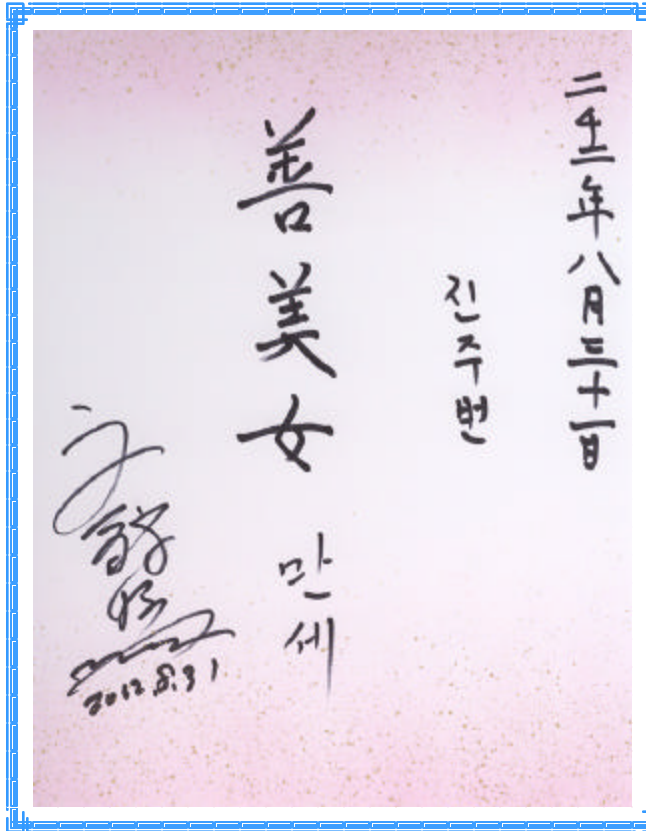 二千十二年八月三十一日
진주번
善美女 만세
2012.8.31